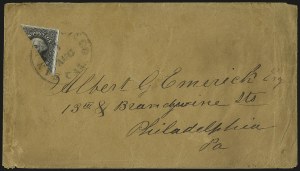 Albert G. Emerick Esq
13th & Brandywine Sts
Philadelphia
Pa